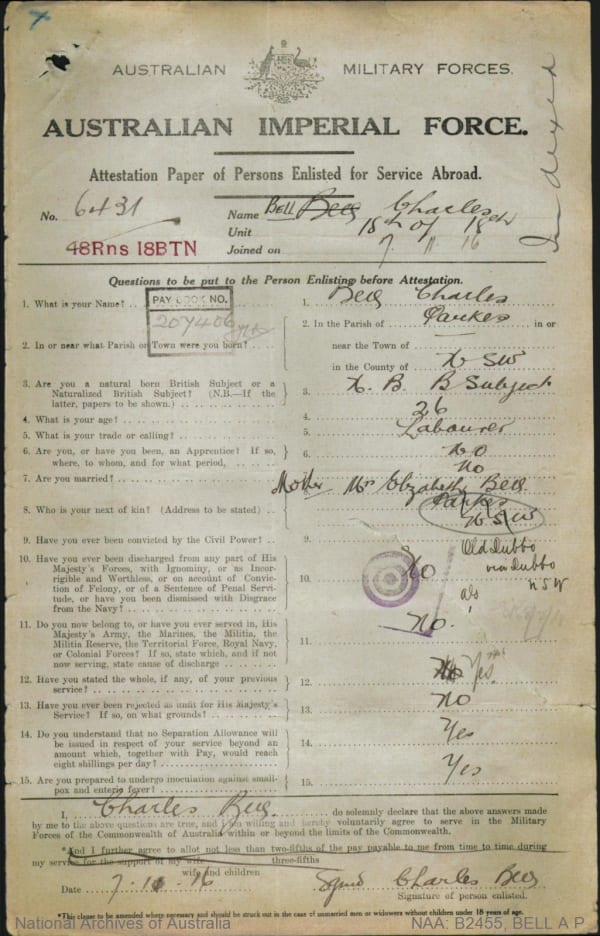 AUSTRALIAN MILITARY FORCES.
AUSTRALIAN IMPERIAL FORCE.
Indexed
Attestation Paper of Persons Enlisted for Service Abroad.
No. 6431
Name BELL Bell Charles
Unit 18th of 18th
48Rns 18BTN
Joined on 7 11 16
Questions to be put to the Person Enlisting before Attestation.
1. What is your Name? 1. Bell Charles
PAY BOOK NO.
207406
2. In or near what Parish or Town were you born? 2. In the Parish of Parkes in or
near the Town of
in the County of N SW
3. Are you a natural born British Subject or a Naturalized British Subject? (N.B.—If the latter, papers to be shown.) 3. N. B. B Subject
4. What is your age? 4. 26
5. What is your trade or calling? 5. Labourer
6. Are you, or have you been, an Apprentice? If so, where, to whom, and for what period, 6. No
7. Are you married? 7. No
8. Who is your next of kin? (Address to be stated) 8. Mother Mrs Elizabeth Bell
Parkes
N SW
Old Dubbo
via Dubbo
N S W
9. Have you ever been convicted by the Civil Power? 9. No
10. Have you ever been discharged from any part of His Majesty's Forces, with Ignominy, or as Incorrigible and Worthless, or on account of Conviction of Felony, or of a Sentence of Penal Servitude, or have you been dismissed with Disgrace from the Navy? 10.
No.
11. Do you now belong to, or have you ever served in, His Majesty's Army, the Marines, the Militia, the Militia Reserve, the Territorial Force, Royal Navy, or Colonial Forces? If so, state which, and if not now serving, state cause of discharge 11.
12. Have you stated the whole, if any, of your previous service? 12. No Yes
13. Have you ever been rejected as unfit for His Majesty's Service? If so, on what grounds? 13. No
14. Do you understand that no Separation Allowance will be issued in respect of your service beyond an amount which, together with Pay, would reach eight shillings per day? 14. Yes
15. Are you prepared to undergo inoculation against small-pox and enteric fever? 15. Yes
I, Charles Bell do solemnly declare that the above answers made
by me to the above questions are true, and I am willing and hereby voluntarily agree to serve in the Military
Forces of the Commonwealth of Australia within or beyond the limits of the Commonwealth.
*And I further agree to allot not less than two-fifths of the pay payable to me from time to time during
three-fifths
my service for the support of my wife
wife and children
Date 7-11-16 Signed Charles Bell
Signature of person enlisted.
*This clause to be amended where necessary and should be struck out in the case of unmarried men or widowers without children under 18 years of age.
National Archives of Australia
NAA: B2455, BELL A P